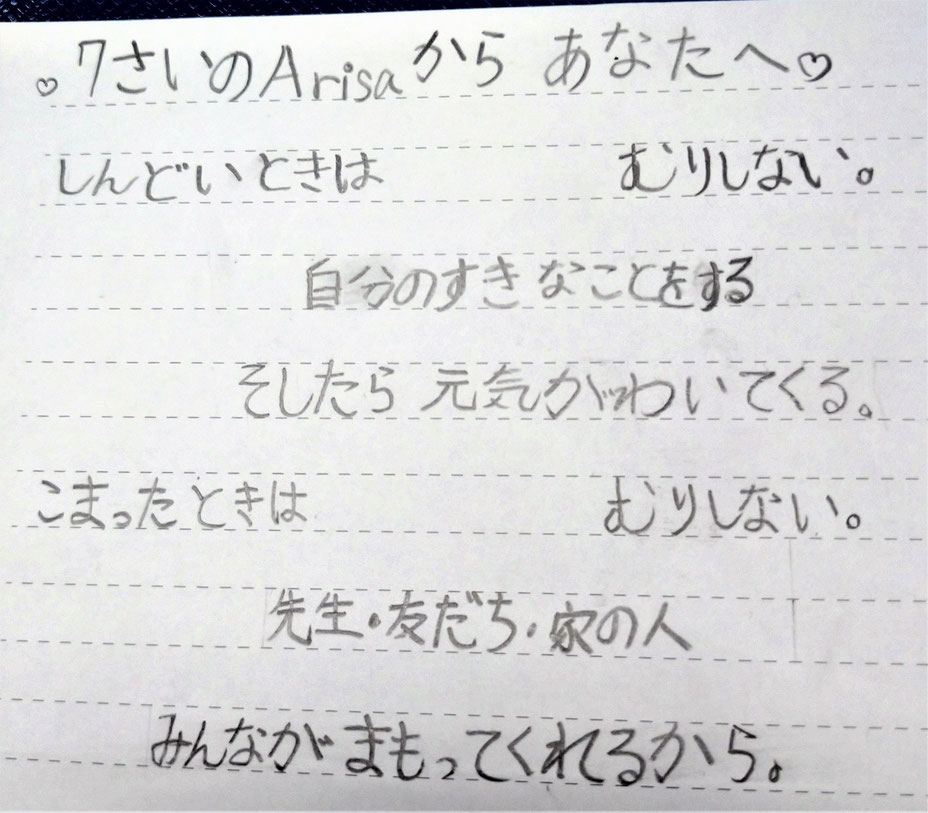 ♡7さいのArisaから あなたへ♡
しんどいときは むりしない。
自分のすきなことをする
そしたら 元気がわいてくる。
こまったときは むりしない。
先生・友だち・家の人
みんながまもってくれるから。